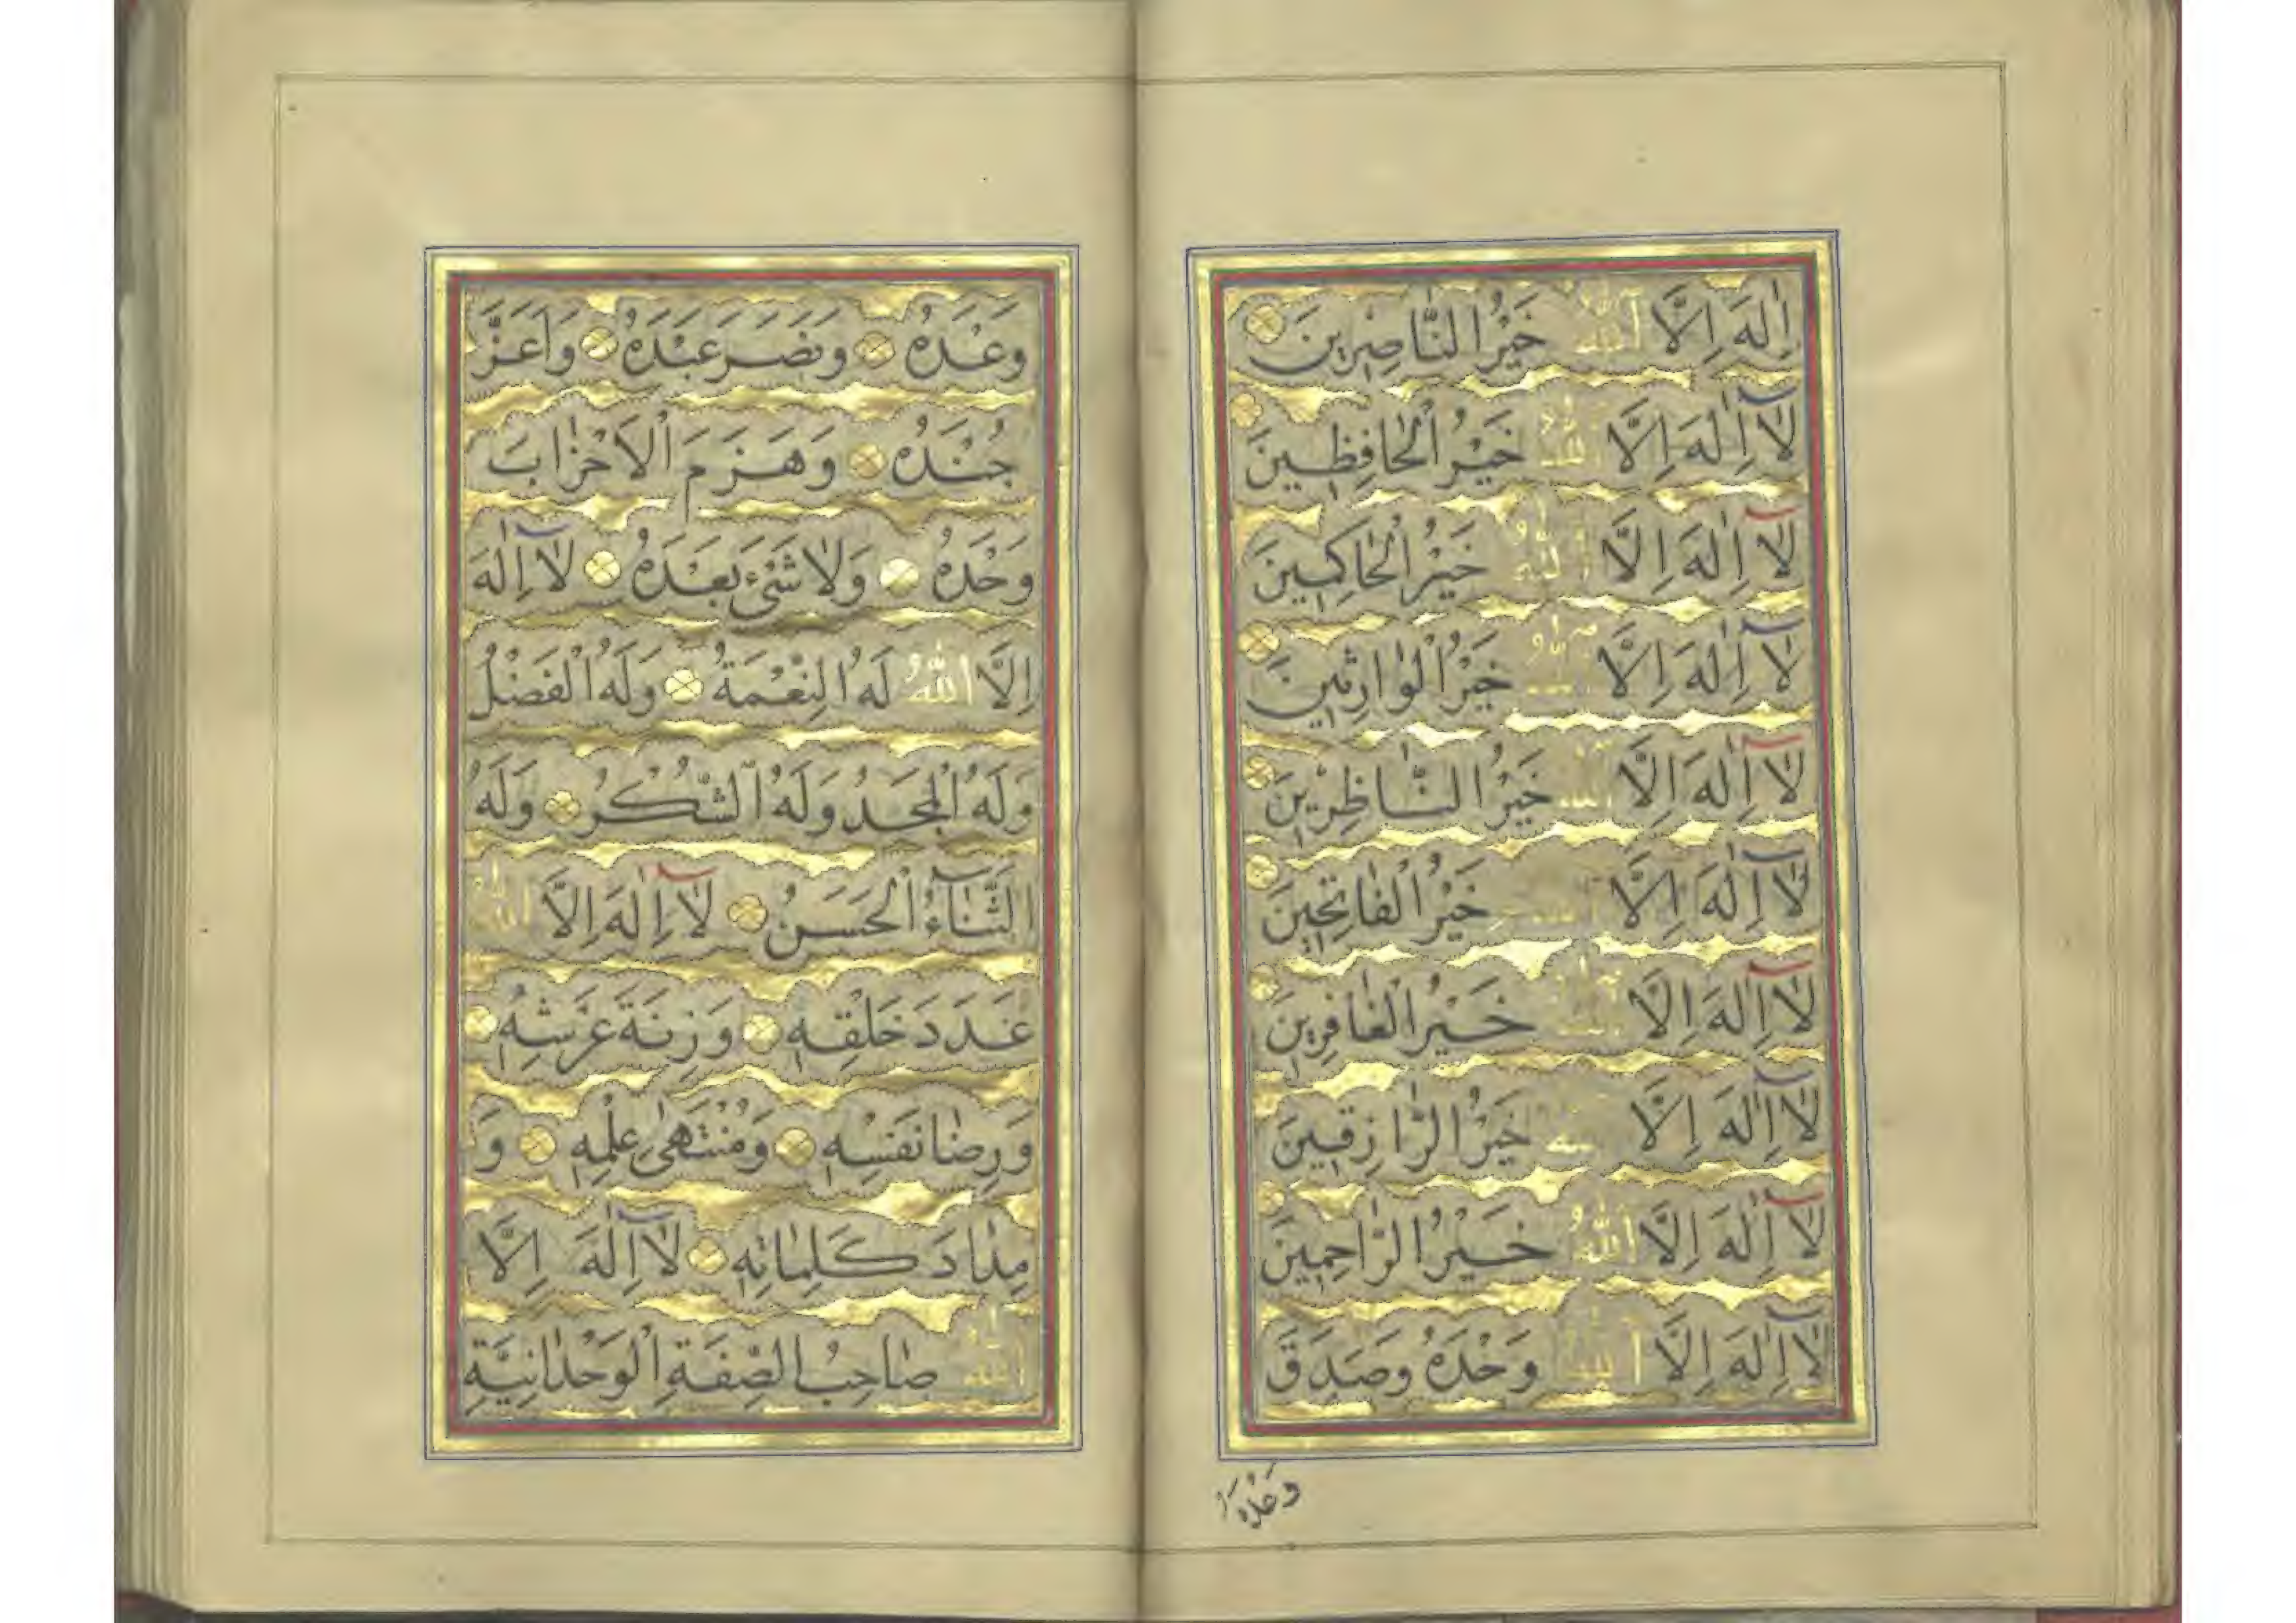 اِلٰهَ اِلَّا اللّٰهُ خَيْرُ النَّاصِرِينَ
لَآ اِلٰهَ اِلَّا اللّٰهُ خَيْرُ الْحَافِظِينَ
لَآ اِلٰهَ اِلَّا اللّٰهُ خَيْرُ الْحَاكِمِينَ
لَآ اِلٰهَ اِلَّا اللّٰهُ خَيْرُ الْوَارِثِينَ
لَآ اِلٰهَ اِلَّا اللّٰهُ خَيْرُ النَّاظِرِينَ
لَآ اِلٰهَ اِلَّا اللّٰهُ خَيْرُ الْفَاتِحِينَ
لَآ اِلٰهَ اِلَّا اللّٰهُ خَيْرُ الْغَافِرِينَ
لَآ اِلٰهَ اِلَّا اللّٰهُ خَيْرُ الرَّازِقِينَ
لَآ اِلٰهَ اِلَّا اللّٰهُ خَيْرُ الرَّاحِمِينَ
لَآ اِلٰهَ اِلَّا اللّٰهُ وَحْدَهُ وَصَدَقَ
وَعْدَهُ
وَعْدَهُ وَنَصَرَ عَبْدَهُ وَاَعَزَّ
جُنْدَهُ وَهَزَمَ الْاَحْزَابَ
وَحْدَهُ وَلَا شَيْءَ بَعْدَهُ لَآ اِلٰهَ
اِلَّا اللّٰهُ لَهُ النِّعْمَةُ وَلَهُ الْفَضْلُ
وَلَهُ الْمَجْدُ وَلَهُ الشُّكْرُ وَلَهُ
الثَّنَآءُ الْحَسَنُ لَآ اِلٰهَ اِلَّا اللّٰهُ
عَدَدَ خَلْقِهِ وَزِنَةَ عَرْشِهِ
وَرِضَا نَفْسِهِ وَمُنْتَهٰى عِلْمِهِ وَ
مِدَادَ كَلِمَاتِهِ لَآ اِلٰهَ اِلَّا
اللّٰهُ صَاحِبُ الصِّفَةِ الْوَحْدَانِيَّةِ